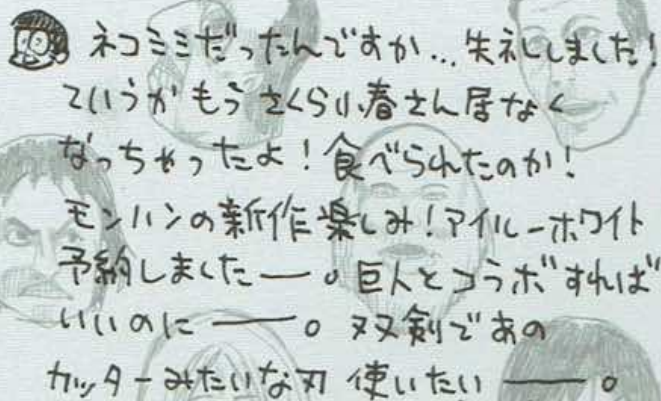 ネコミミだったんですか...失礼しました!
ていうか もう さくら小春さん居なく
なっちゃったよ!食べられたのか!
モンハンの新作楽しみ!アイルーホワイト
予約しました――。巨人とコラボすれば
いいのに――。双剣であの
カッターみたいな刃 使いたい――。